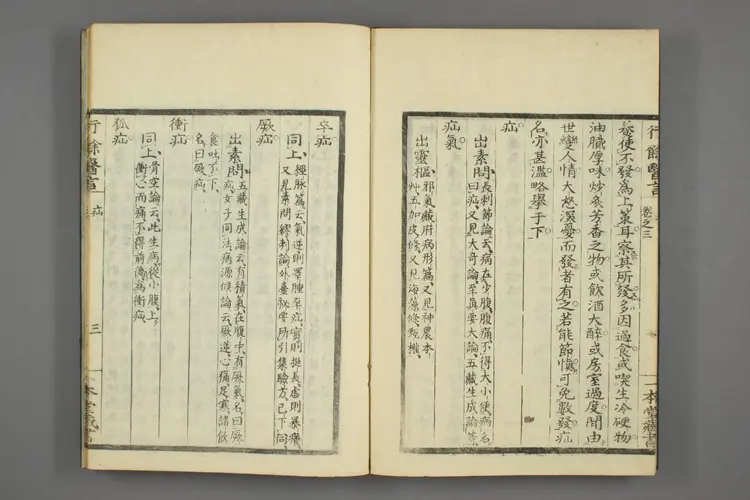 行餘醫言 卷之三
養使不發爲上策耳察其所發多因過食或喫生冷硬物
油膩厚味炒炙芳香之物或飲酒大醉或房室過度間由
世變人情大怒深憂而發者有之若能節慎可免數發疝
名亦甚濫略擧于下
疝
出素問長刺節論云病在少腹腹痛不得大小便病名
曰疝又見大奇論至眞要大論五藏生成論等
疝氣
出靈樞邪氣藏府病形篇又見神農本
艸五加皮條又見海藻條甄權
一本堂藏書
卒疝
同上經脉篇云氣逆則睪腫卒疝實則挺長虛則暴癢
又見素問繆刺論外臺祕要所引集驗方已下同
厥疝
出素問五藏生成論云有積氣在腹中有厥氣名曰厥
疝女子同法病源候論云厥逆心痛足寒諸飲
食吐不下
名曰厥疝
衝疝
同上骨空論云此生病從小腹上
衝心而痛不得前後爲衝疝
狐疝
行餘醫言 疝 三